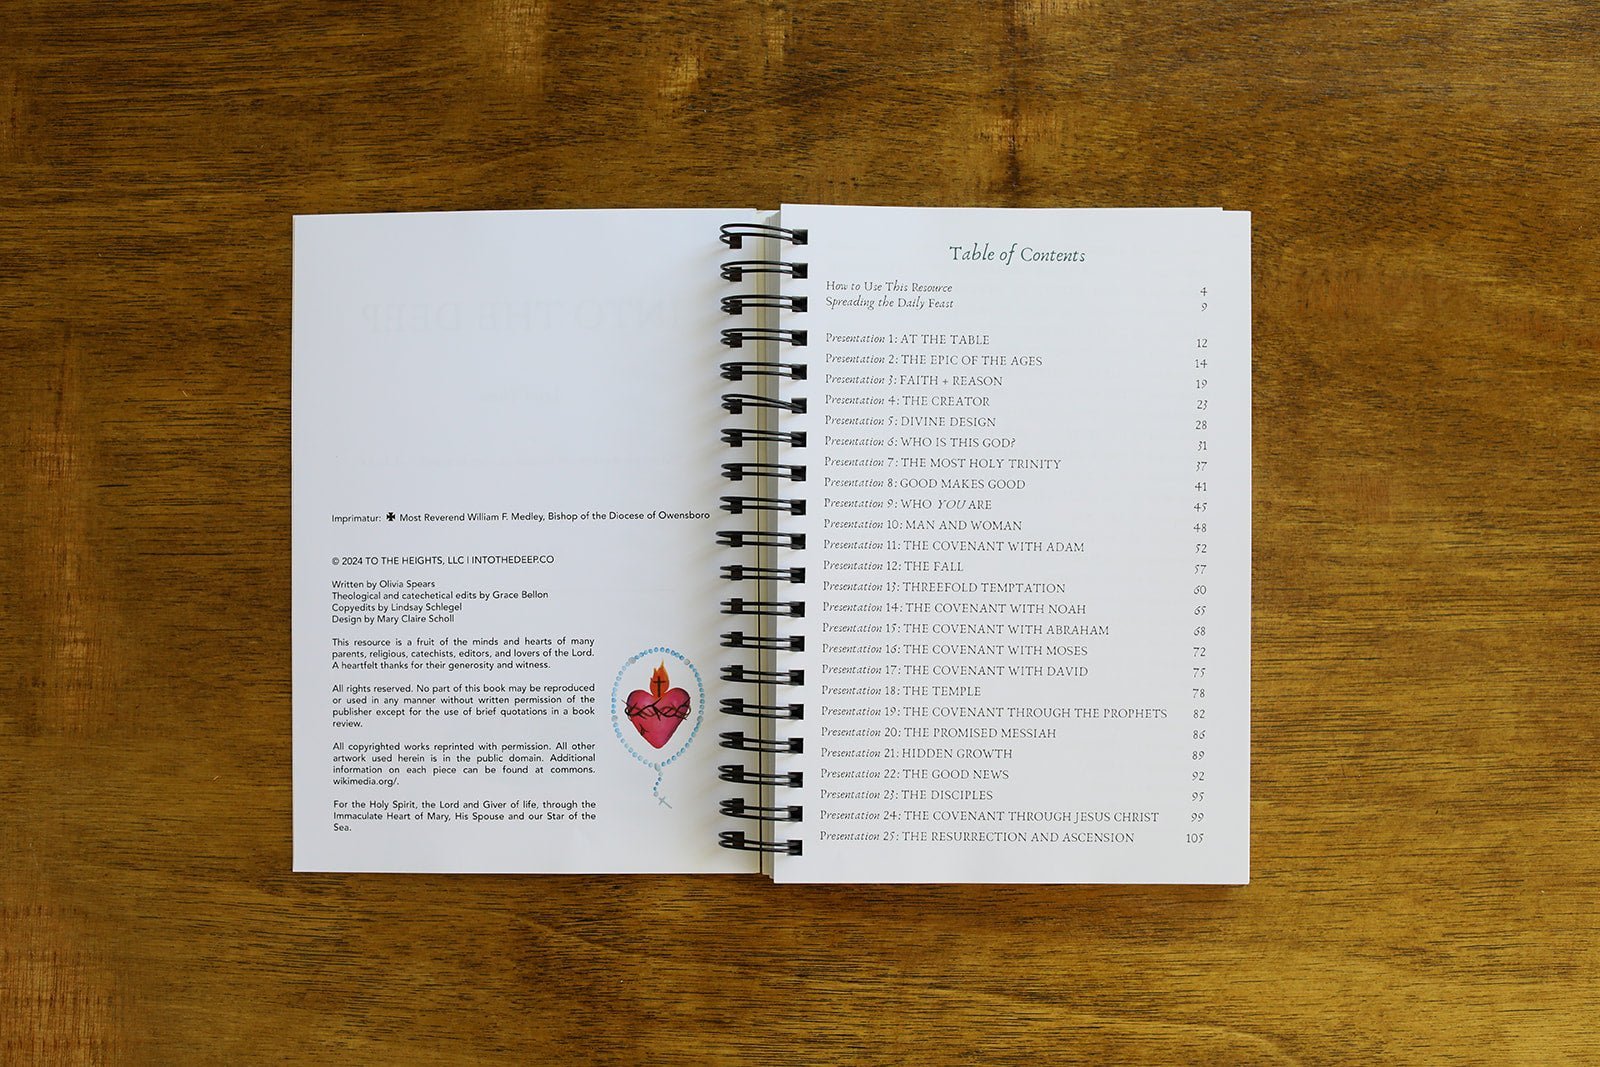 INTO THE DEEP
Imprimatur: ✠ Most Reverend William F. Medley, Bishop of the Diocese of Owensboro
© 2024 TO THE HEIGHTS, LLC | INTOTHEDEEP.CO
Written by Olivia Spears
Theological and catechetical edits by Grace Bellon
Copyedits by Lindsay Schlegel
Design by Mary Claire Scholl
This resource is a fruit of the minds and hearts of many
parents, religious, catechists, editors, and lovers of the Lord.
A heartfelt thanks for their generosity and witness.
All rights reserved. No part of this book may be reproduced
or used in any manner without written permission of the
publisher except for the use of brief quotations in a book
review.
All copyrighted works reprinted with permission. All other
artwork used herein is in the public domain. Additional
information on each piece can be found at commons.
wikimedia.org/.
For the Holy Spirit, the Lord and Giver of life, through the
Immaculate Heart of Mary, His Spouse and our Star of the
Sea.
Table of Contents
How to Use This Resource 4
Spreading the Daily Feast 9
Presentation 1: AT THE TABLE 12
Presentation 2: THE EPIC OF THE AGES 14
Presentation 3: FAITH + REASON 19
Presentation 4: THE CREATOR 23
Presentation 5: DIVINE DESIGN 28
Presentation 6: WHO IS THIS GOD? 31
Presentation 7: THE MOST HOLY TRINITY 37
Presentation 8: GOOD MAKES GOOD 41
Presentation 9: WHO YOU ARE 45
Presentation 10: MAN AND WOMAN 48
Presentation 11: THE COVENANT WITH ADAM 52
Presentation 12: THE FALL 57
Presentation 13: THREEFOLD TEMPTATION 60
Presentation 14: THE COVENANT WITH NOAH 65
Presentation 15: THE COVENANT WITH ABRAHAM 68
Presentation 16: THE COVENANT WITH MOSES 72
Presentation 17: THE COVENANT WITH DAVID 75
Presentation 18: THE TEMPLE 78
Presentation 19: THE COVENANT THROUGH THE PROPHETS 82
Presentation 20: THE PROMISED MESSIAH 86
Presentation 21: HIDDEN GROWTH 89
Presentation 22: THE GOOD NEWS 92
Presentation 23: THE DISCIPLES 95
Presentation 24: THE COVENANT THROUGH JESUS CHRIST 99
Presentation 25: THE RESURRECTION AND ASCENSION 105